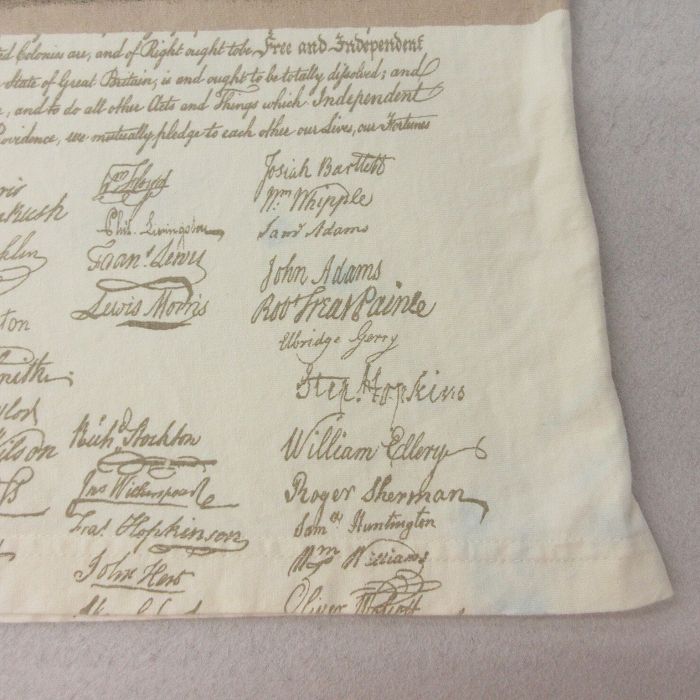 ted Colonies are, and of Right ought tobe Free and Independent
State of Great Britain, is and ought to be totally dissolved; and
, and to do all other Acts and Things which Independent
Providence, we mutually pledge to each other our Lives, our Fortunes
ris
Rush
klin
ton
mith
ylor
Wilson
Wm Floyd
Phil. Livingston
Frans. Lewis
Lewis Morris
Richd. Stockton
Jno Witherspoon
Fras. Hopkinson
John Hart
Josiah Bartlett
Wm Whipple
Saml Adams
John Adams
Robt Treat Paine
Elbridge Gerry
Step. Hopkins
William Ellery
Roger Sherman
Samel Huntington
Wm Williams
Oliver Wolcott